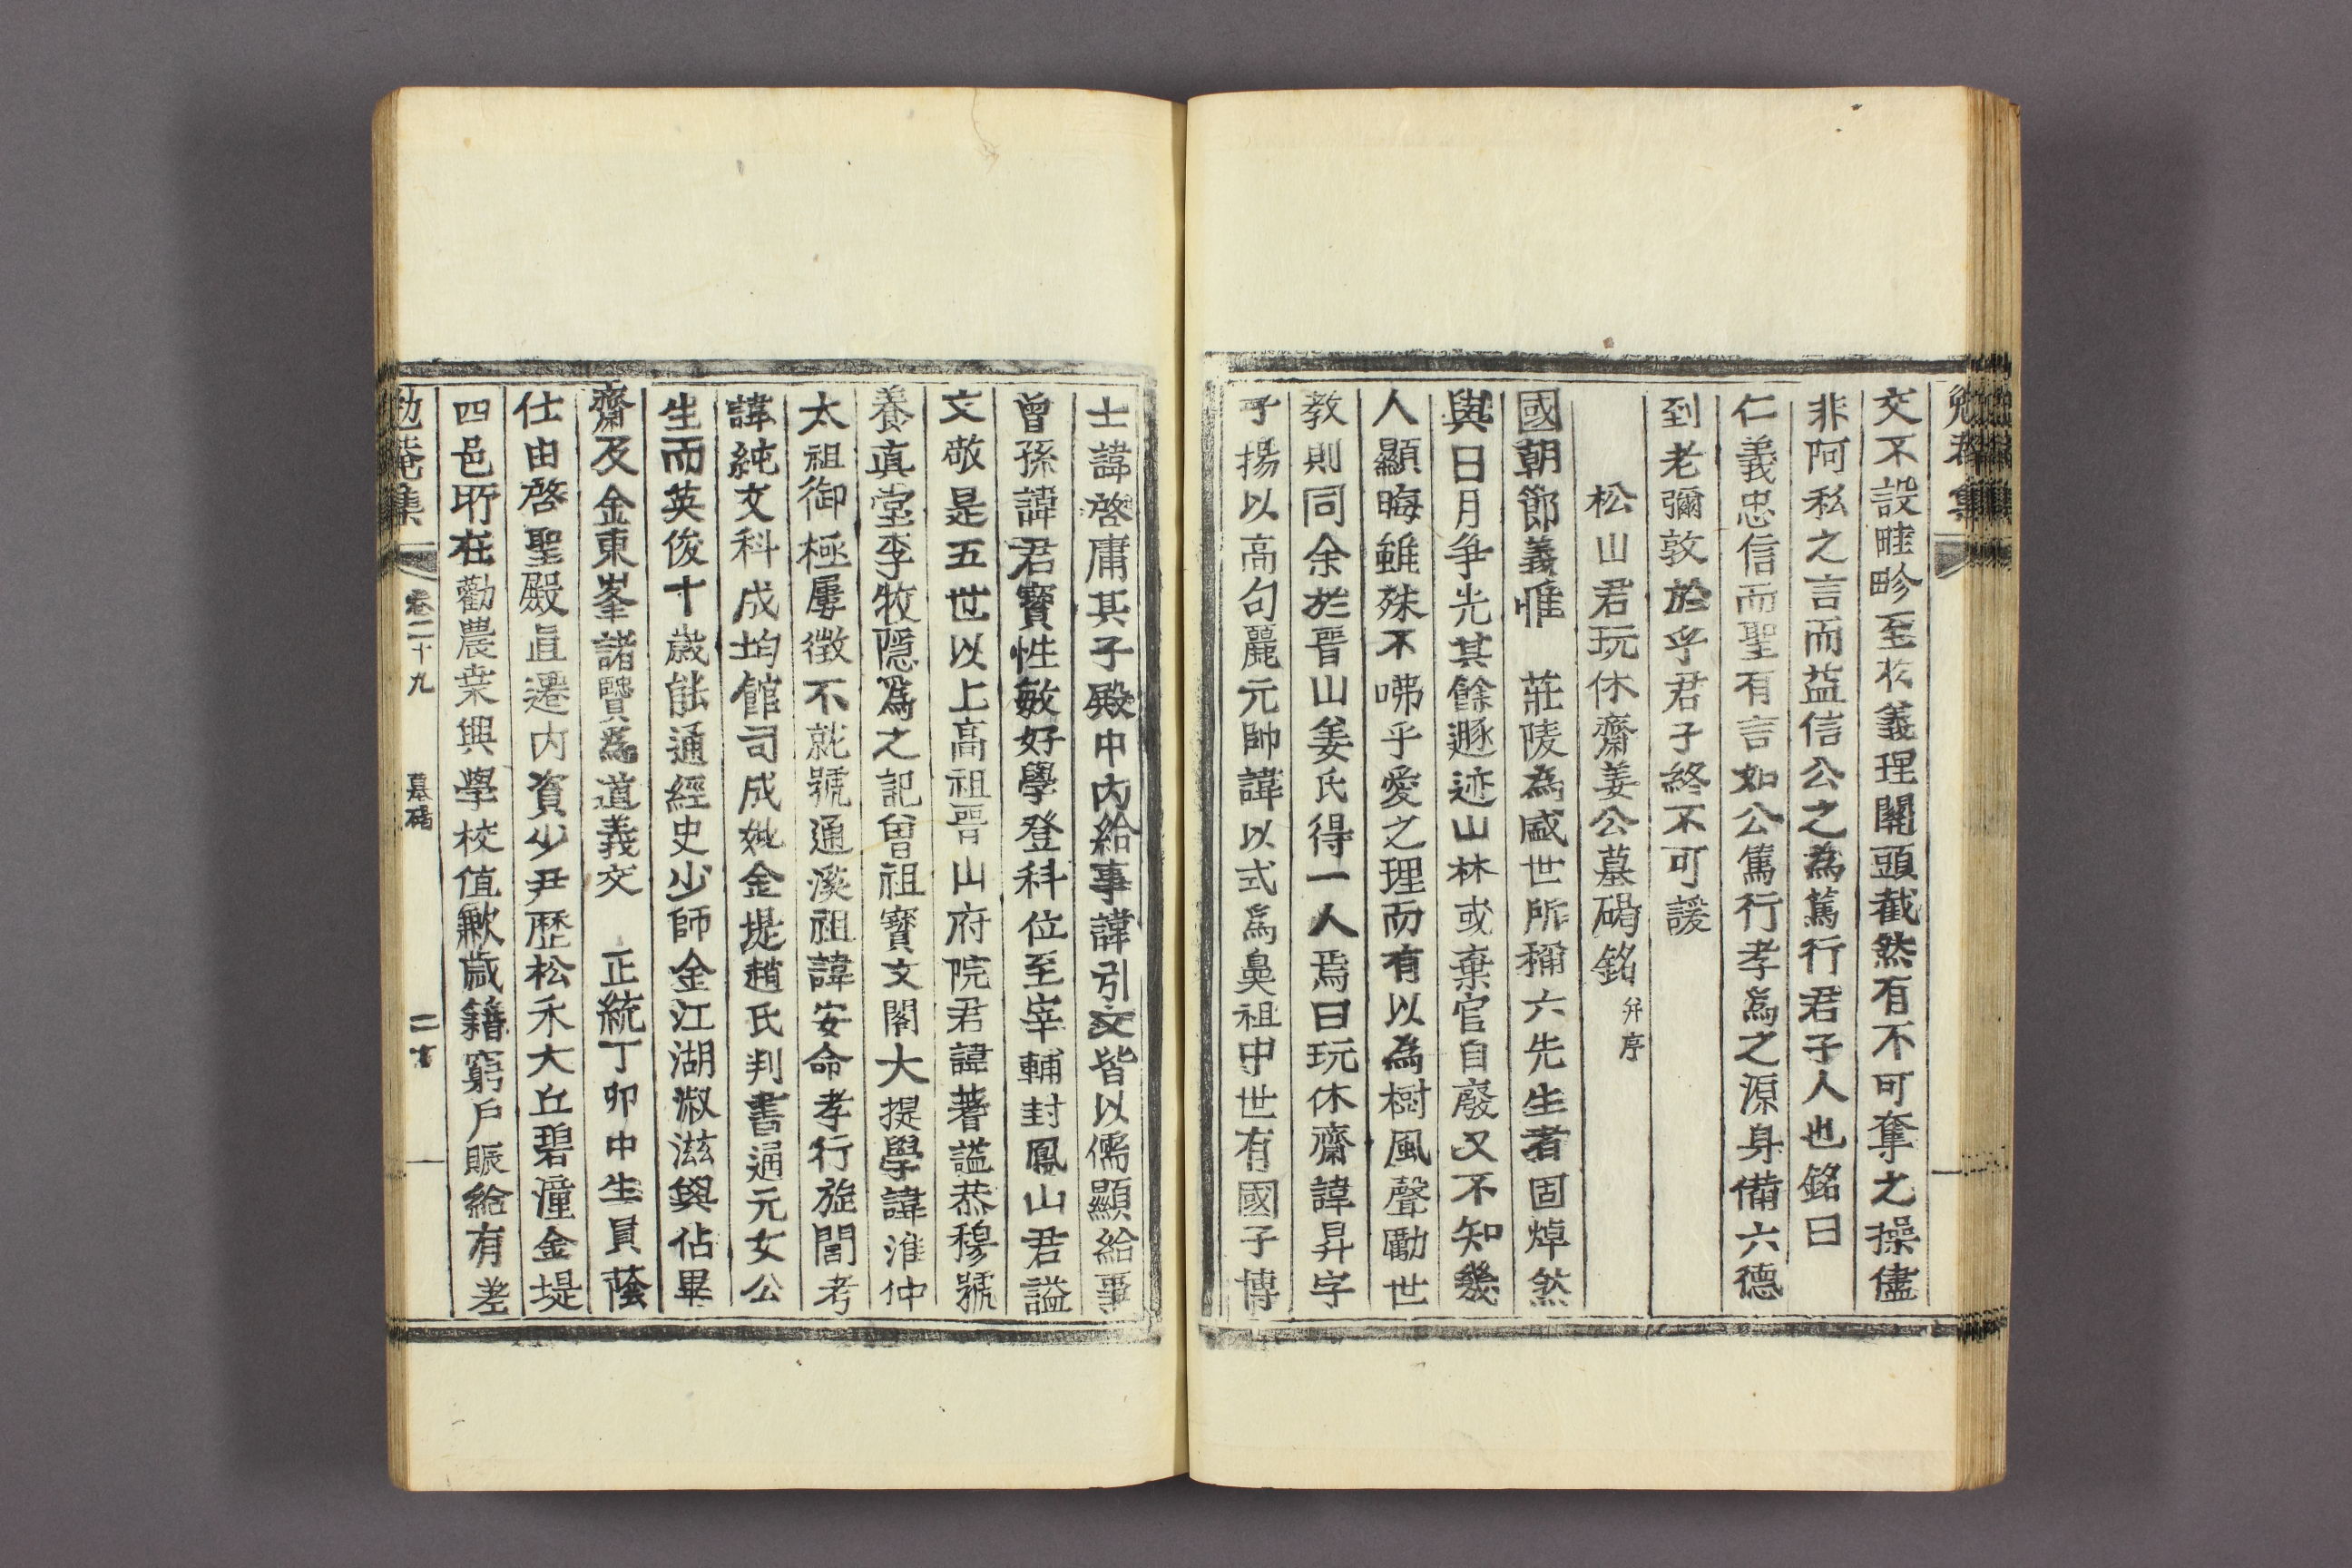 勉菴集
交不設畦畛至於義理關頭截然有不可奪之操儘
非阿私之言而益信公之為篤行君子人也銘曰
仁義忠信而聖有言如公篤行孝爲之源身備六德
到老彌敦於乎君子終不可諼
松山君玩休齋姜公墓碣銘 幷序
國朝節義惟 莊陵為盛世所稱六先生者固焯然
與日月争光其餘遯迹山林或棄官自廢又不知幾
人顯晦雖殊不咈乎愛之理而有以為樹風聲勵世
教則同余於晋山姜氏得一人焉曰玩休齋諱昇字
子揚以高句麗元帥諱以式爲鼻祖中世有國子博
士諱啓庸其子殿中內給事諱引文皆以儒顯給事
曾孫諱君寶性敏好學登科位至宰輔封鳳山君謚
文敬是五世以上高祖晋山府院君諱蓍謚恭穆號
養真堂李牧隱爲之記曾祖寶文閣大提學諱淮仲
太祖御極屢徵不就號通溪祖諱安命孝行旋閭考
諱純文科成均館司成妣金堤趙氏判書通元女公
生而英俊十歲能通經史少師金江湖淑滋與佔畢
齋及金東峯諸賢爲道義交 正統丁卯中生員蔭
仕由啓聖殿直遷內資少尹歷松禾大丘碧潼金堤
四邑所在勸農桒興學校值歉歲籍窮戶賑給有差
勉菴集 卷二十九 墓碣 二十